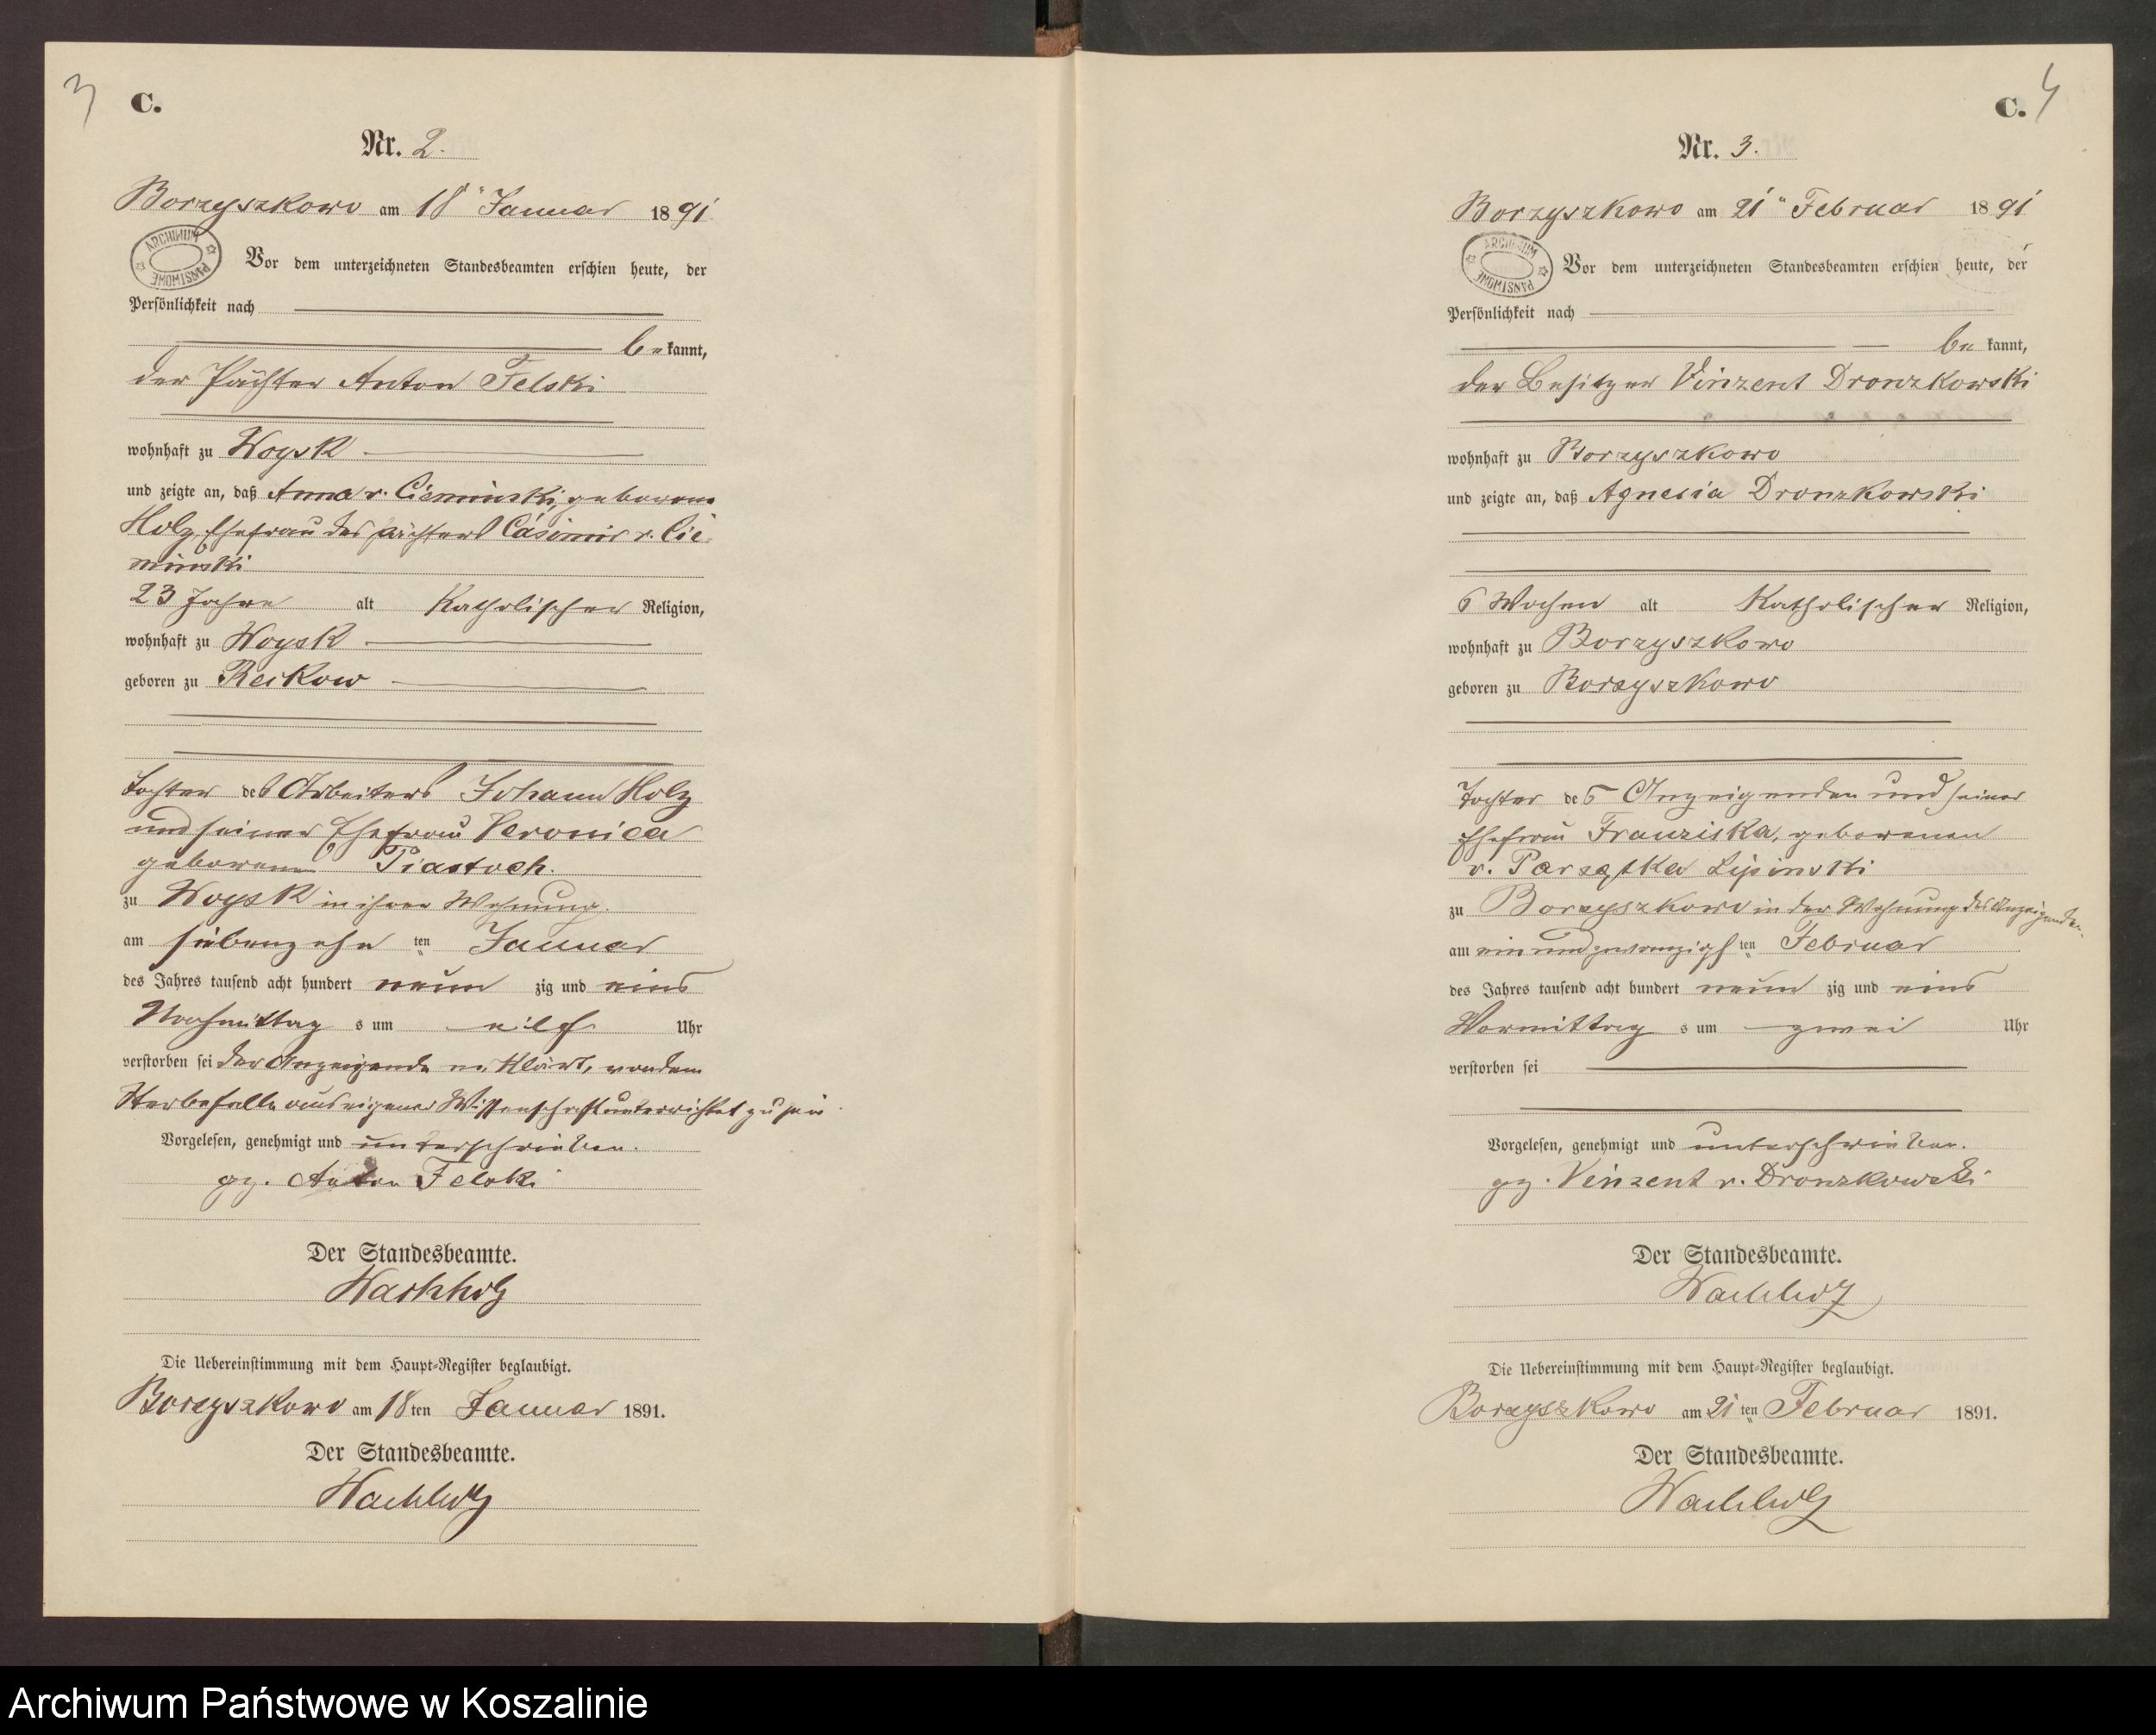 3
C.
Nr. 2.
Borzyszkowo am 18" Januar 1891
ARCHIWUM PAŃSTWOWE
Vor dem unterzeichneten Standesbeamten erschien heute, der
Persönlichkeit nach
be kannt,
der Pächter Anton Felski
wohnhaft zu Woysk
und zeigte an, daß Anna v. Cieminski, geborene
Holz, Ehefrau des Pächters Casimir v. Cie-
minski
23 Jahre alt Katholischer Religion,
wohnhaft zu Woysk
geboren zu Reckow
Tochter des Arbeiters Johann Holz
und seiner Ehefrau Veronica
geborene Piastoch.
zu Woysk in ihrer Wohnung.
am siebenzehn ten Januar
des Jahres tausend acht hundert neun zig und eins
Nachmittag s um eilf Uhr
verstorben sei der Anzeigende erklärt, von dem
Sterbefalle aus eigener Wissenschaft unterrichtet zu sein.
Vorgelesen, genehmigt und unterschrieben.
gz. Anton Felski
Der Standesbeamte.
Wachholz
Die Uebereinstimmung mit dem Haupt-Register beglaubigt.
Borzyszkowo am 18ten Januar 1891.
Der Standesbeamte.
Wachholz
C. 4
Nr. 3.
Borzyszkowo am 21" Februar 1891
ARCHIWUM PAŃSTWOWE
Vor dem unterzeichneten Standesbeamten erschien heute, der
Persönlichkeit nach
be kannt,
der Besitzer Vinzent Dronzkowski
wohnhaft zu Borzyszkowo
und zeigte an, daß Agnesia Dronzkowski
6 Wochen alt Katholischer Religion,
wohnhaft zu Borzyszkowo
geboren zu Borzyszkowo
Tochter des Anzeigenden und seiner
Ehefrau Franziska, geborenen
v. Lipinski
zu Borzyszkowo in der Wohnung des Anzeigenden.
am ein und zwanzigs ten Februar
des Jahres tausend acht hundert neun zig und eins
Vormittag s um zwei Uhr
verstorben sei
Vorgelesen, genehmigt und unterschrieben.
gz. Vinzent v. Dronzkowski
Der Standesbeamte.
Wachholz
Die Uebereinstimmung mit dem Haupt-Register beglaubigt.
Borzyszkowo am 21ten Februar 1891.
Der Standesbeamte.
Wachholz
Archiwum Państwowe w Koszalinie